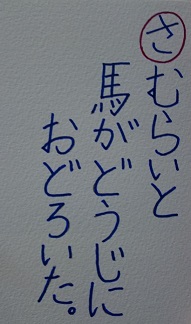 さむらいと
馬がどうじに
おどろいた。